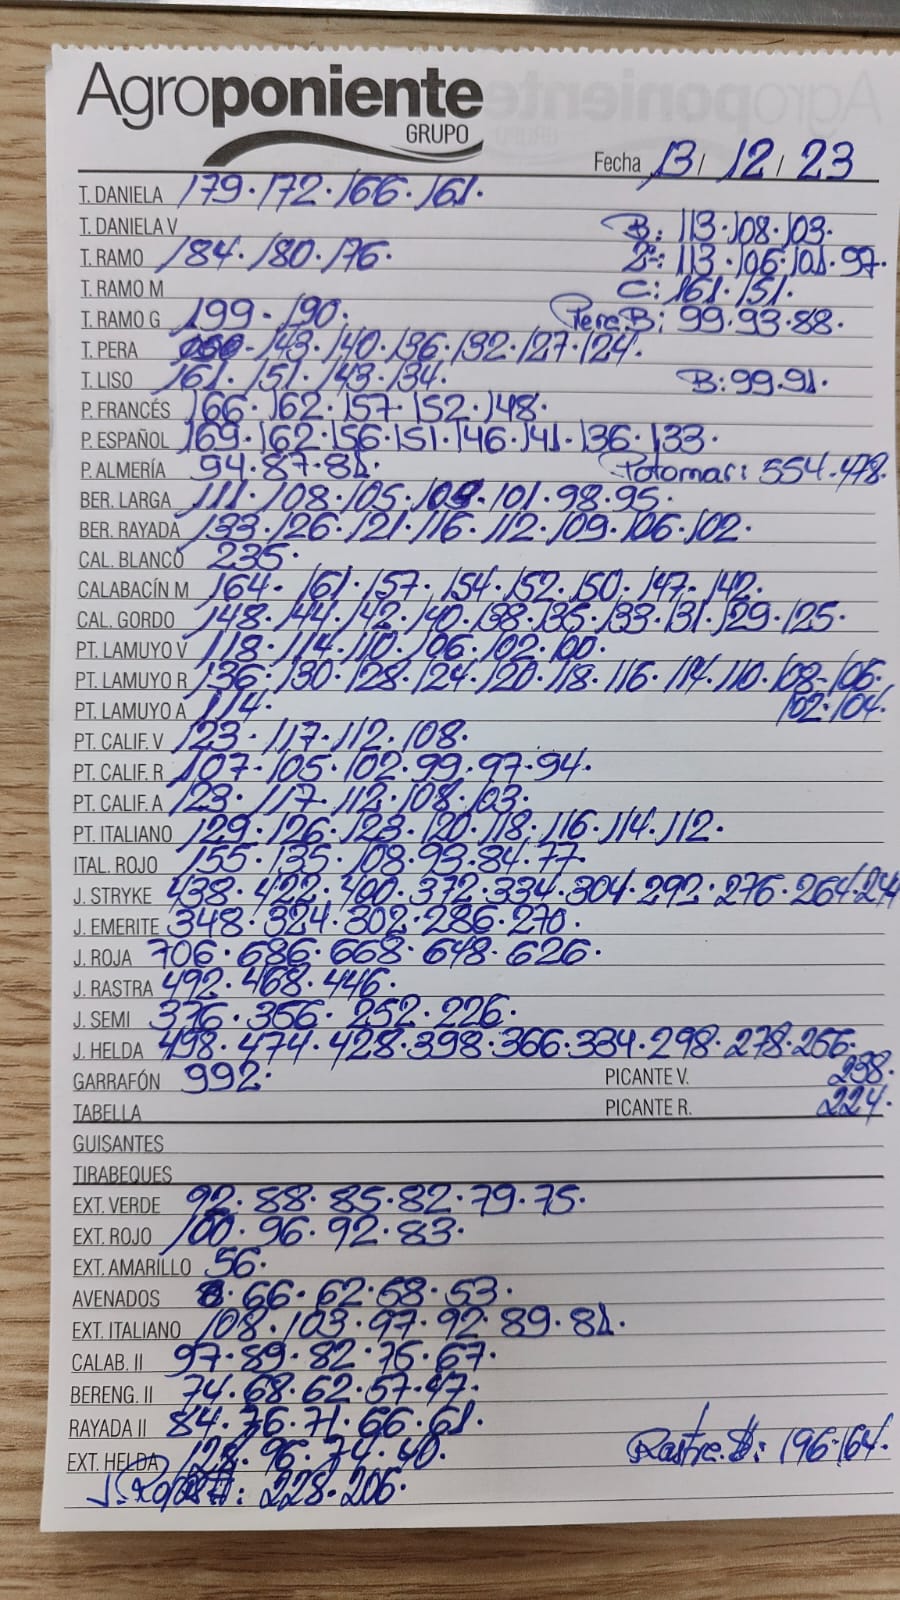 Agroponiente
GRUPO
Fecha 13 / 12 / 23
T. DANIELA 179 · 172 · 166 · 161 ·
T. DANIELA V B: 113 · 108 · 103 ·
T. RAMO 184 · 180 · 176 · 2ª: 113 · 106 · 101 · 97 ·
T. RAMO M C: 161 · 151 ·
T. RAMO G 199 · 190 · Pera B: 99 · 93 · 88 ·
T. PERA 143 · 140 · 136 · 132 · 127 · 124 ·
T. LISO 161 · 151 · 143 · 134 · B: 99 · 91 ·
P. FRANCÉS 166 · 162 · 157 · 152 · 148 ·
P. ESPAÑOL 169 · 162 · 156 · 151 · 146 · 141 · 136 · 133 ·
P. ALMERÍA 94 · 87 · 81 · Potomar: 554 · 478 ·
BER. LARGA 111 · 108 · 105 · 103 · 101 · 98 · 95 ·
BER. RAYADA 133 · 126 · 121 · 116 · 112 · 109 · 106 · 102 ·
CAL. BLANCO 235 ·
CALABACÍN M 164 · 161 · 157 · 154 · 152 · 150 · 147 · 142 ·
CAL. GORDO 148 · 144 · 142 · 140 · 138 · 135 · 133 · 131 · 129 · 125 ·
PT. LAMUYO V 118 · 114 · 110 · 106 · 102 · 100 ·
PT. LAMUYO R 136 · 130 · 128 · 124 · 120 · 118 · 116 · 114 · 110 · 108 · 106 ·
PT. LAMUYO A 114 · 102 · 104 ·
PT. CALIF. V 123 · 117 · 112 · 108 ·
PT. CALIF. R 107 · 105 · 102 · 99 · 97 · 94 ·
PT. CALIF. A 123 · 117 · 112 · 108 · 103 ·
PT. ITALIANO 129 · 126 · 123 · 120 · 118 · 116 · 114 · 112 ·
ITAL. ROJO 155 · 135 · 108 · 93 · 84 · 77 ·
J. STRYKE 438 · 422 · 400 · 372 · 334 · 304 · 292 · 276 · 264 ·
J. EMERITE 348 · 324 · 302 · 286 · 270 ·
J. ROJA 706 · 686 · 668 · 648 · 626 ·
J. RASTRA 492 · 468 · 446 ·
J. SEMI 376 · 356 · 252 · 226 ·
J. HELDA 498 · 474 · 428 · 398 · 366 · 334 · 298 · 278 · 256 ·
GARRAFÓN 992 · PICANTE V. 238 ·
TABELLA PICANTE R. 224 ·
GUISANTES
TIRABEQUES
EXT. VERDE 92 · 88 · 85 · 82 · 79 · 75 ·
EXT. ROJO 100 · 96 · 92 · 83 ·
EXT. AMARILLO 56 ·
AVENADOS 66 · 62 · 58 · 53 ·
EXT. ITALIANO 108 · 103 · 97 · 92 · 89 · 81 ·
CALAB. II 97 · 89 · 82 · 75 · 67 ·
BERENG. II 74 · 68 · 62 · 57 · 47 ·
RAYADA II 84 · 76 · 71 · 66 · 61 ·
EXT. HELDA 128 · 96 · 74 · 40 · Rastra : 196 · 164 ·
228 · 206 ·